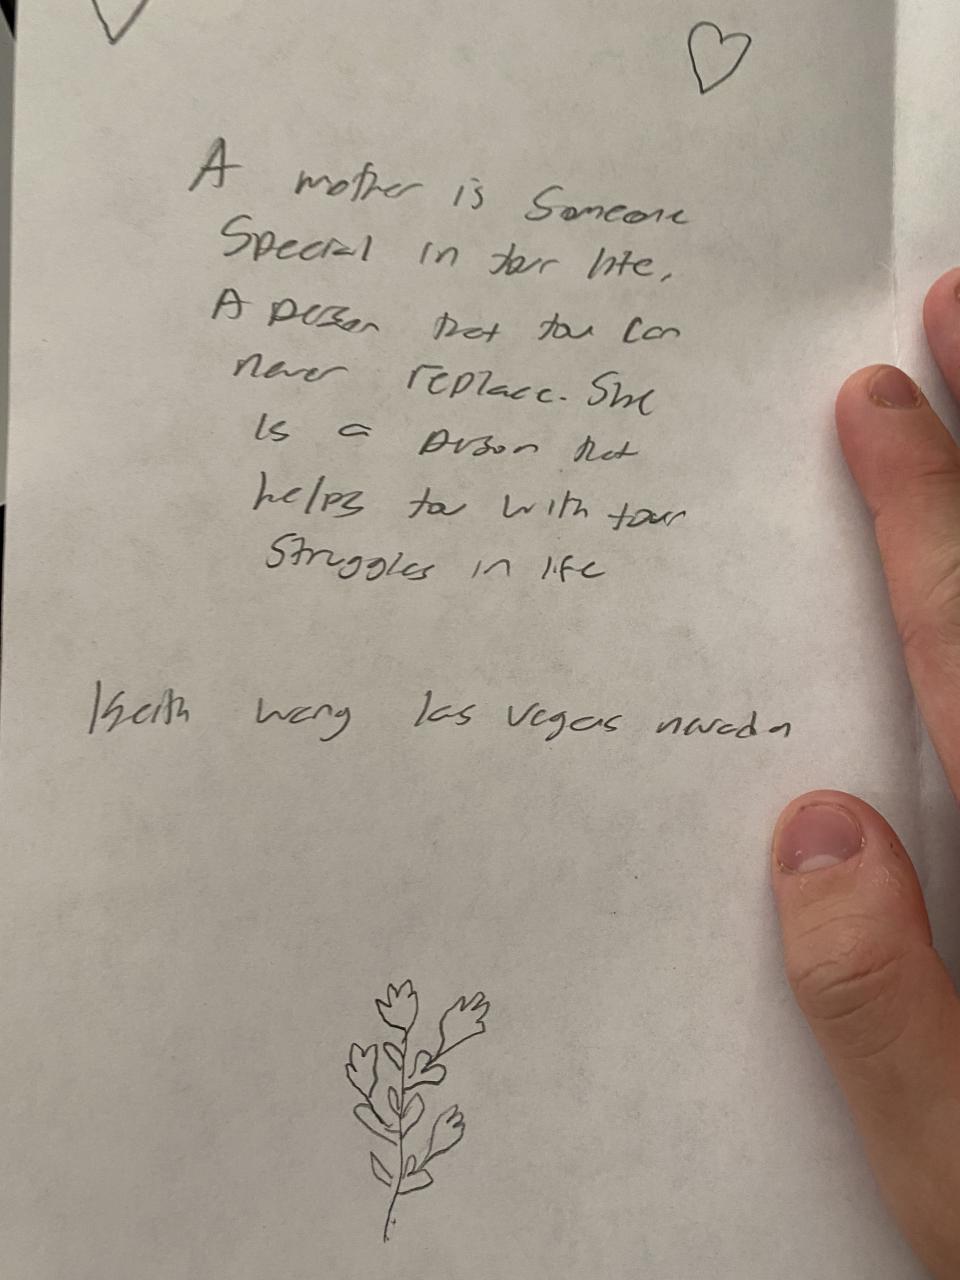 A mother is Someone
Special in your life.
A person that you can
never replace. She
is a person that
helps you with your
Struggles in life
Keith wang las vegas nevada